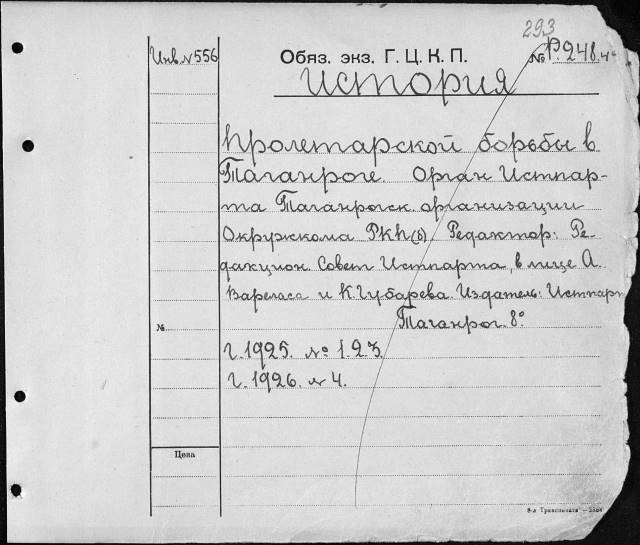 293
Инв. N 556
Обяз. экз. Г. Ц. К. П.
№ Р. 248.
История
пролетарской борьбы в
Таганроге. Орган Истпар-
та Таганрогск. организации
Окружкома РКП(б) Редактор: Ре-
дакцион. Совет Истпарта, в лице А.
Вареласа и К. Губарева. Издатель: Истпарт
№
Таганрог. 8°
г. 1925. № 1. 2-3.
г. 1926. № 4.
Цена